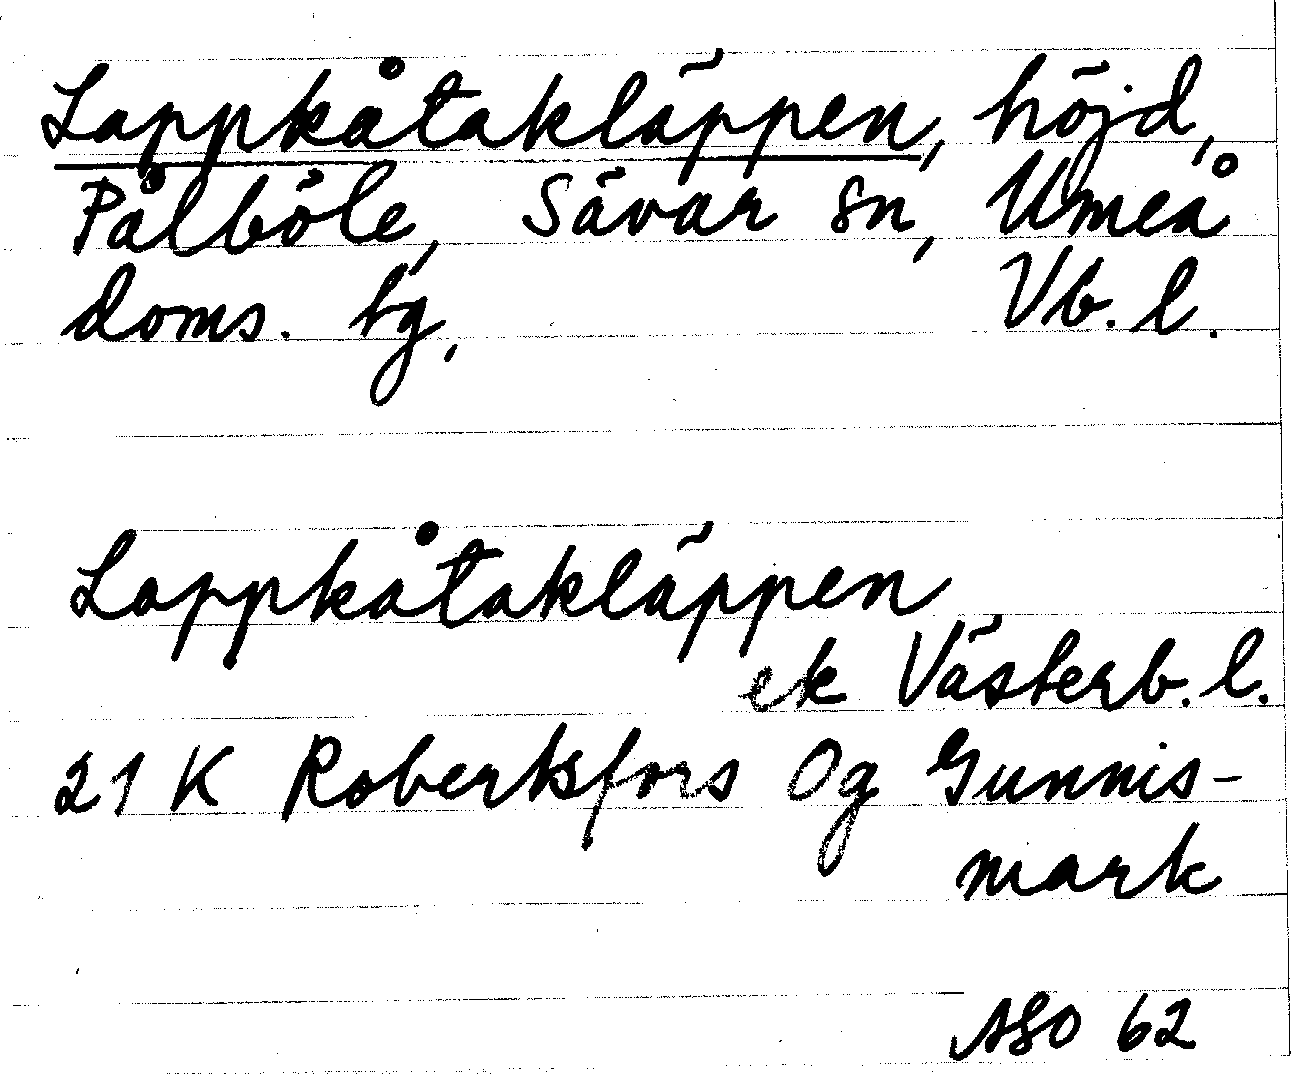 Lappkåtakläppen, höjd,
Pålböle, Sävar sn, Umeå
doms. tg, Vb. l.
Lappkåtakläppen
ek Västerb. l.
21 K Robertsfors Og Gunnis-
mark
ASO 62